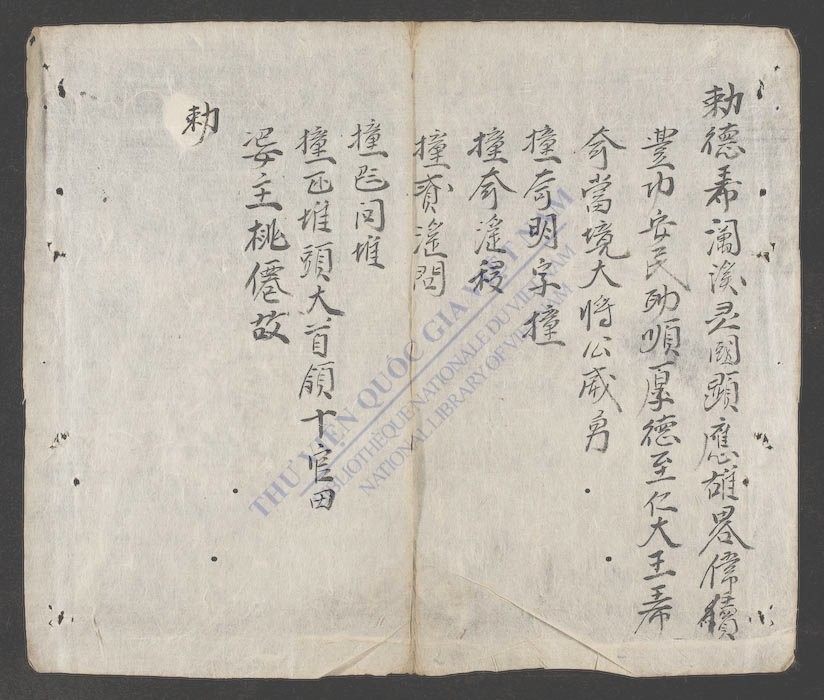 勅德希瀾溪灵國顕應雄畧偉績
豐功安民助順厚德至仁大王希
奇當境大将公威勇
撞奇明字撞
撞奇滛稷
撞賚滛問
撞㐌问堆
撞匹堆頭大首領十官田
娑主桃僊故
勅
THƯ VIỆN QUỐC GIA VIỆT NAM
BIBLIOTHÈQUE NATIONALE DU VIETNAM
NATIONAL LIBRARY OF VIETNAM